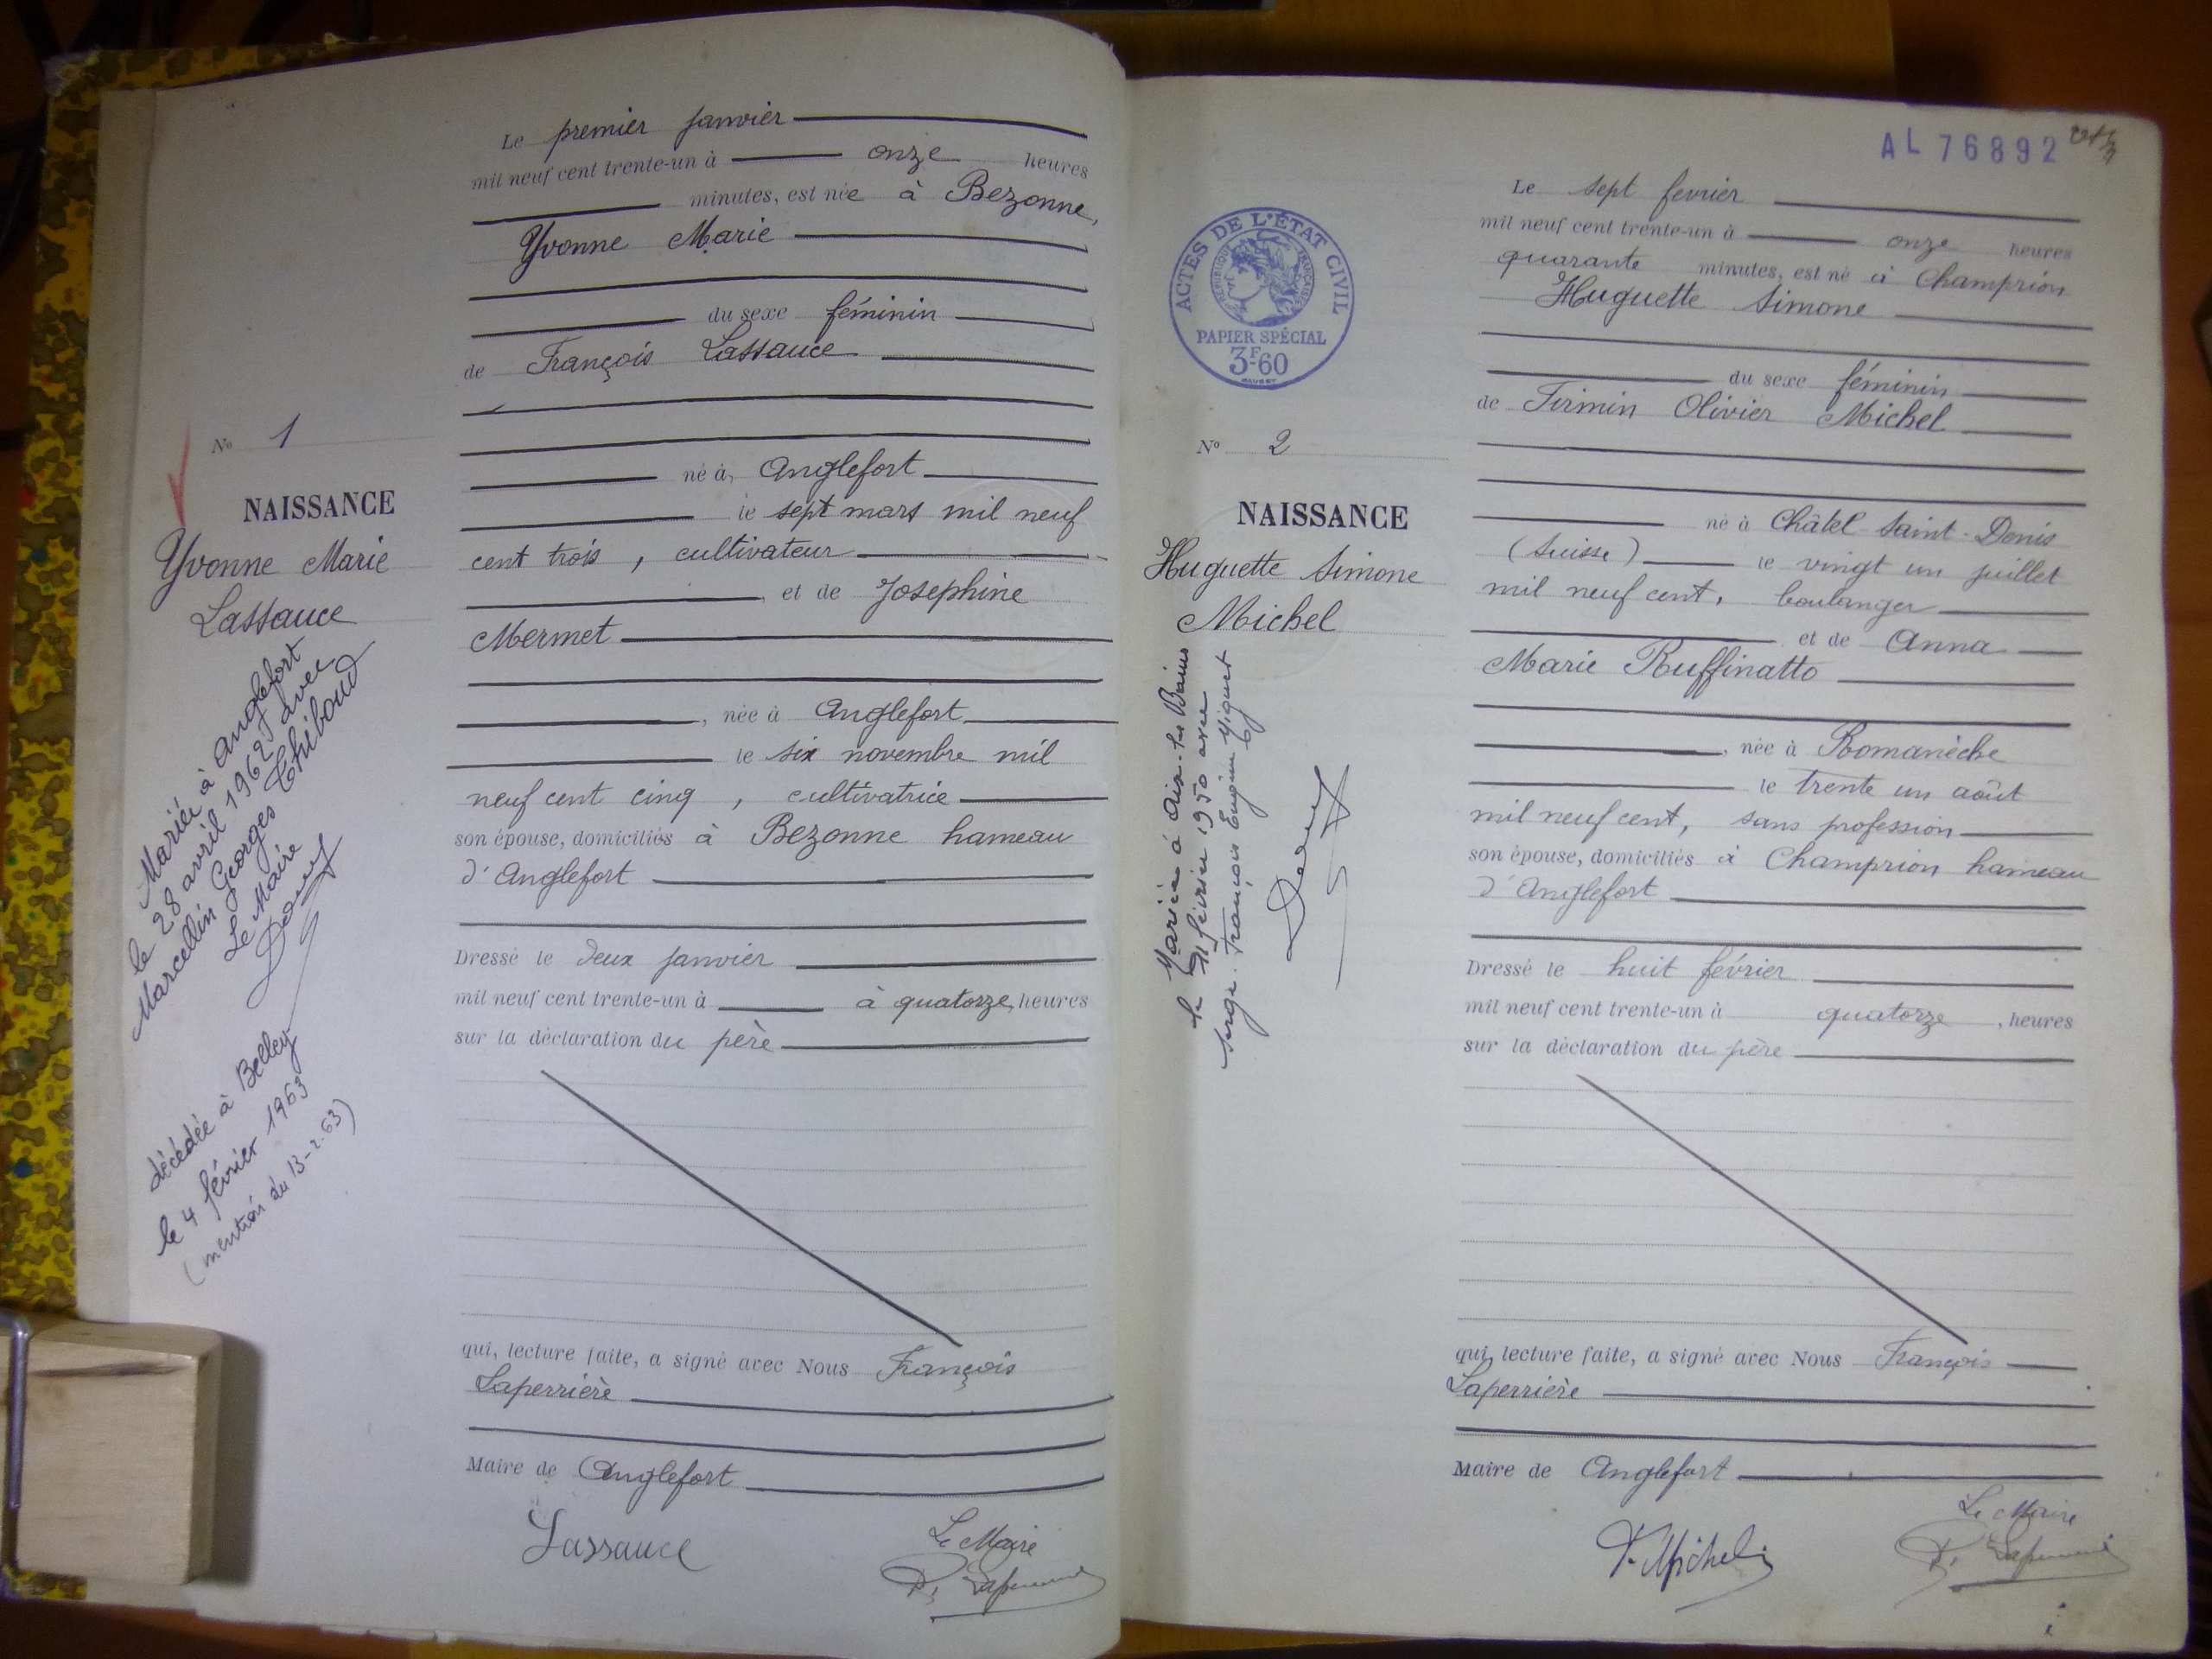 Le premier janvier
mil neuf cent trente-un à onze heures
minutes, est née à Bezonne,
Yvonne Marie
du sexe féminin
de François Lassauce
né à, Anglefort
le sept mars mil neuf
cent trois, cultivateur
, et de Josephine
Mermet
, née à Anglefort
le six novembre mil
neuf cent cinq, cultivatrice
son épouse, domiciliés à Bezonne hameau
d'Anglefort
Dressé le deux janvier
mil neuf cent trente-un à à quatorze, heures
sur la déclaration du père
qui, lecture faite, a signé avec Nous François
Laperrière
Maire de Anglefort
Lassauce
Le Maire
Nº 1
NAISSANCE
Yvonne Marie
Lassauce
Mariée à Anglefort
le 28 avril 1962 avec
Marcellin Georges Thiboud
Le Maire
décédée à Belley
le 4 février 1963
(mention du 13-2.63)
AL 76892
ACTES DE L'ÉTAT CIVIL
RÉPUBLIQUE FRANÇAISE
PAPIER SPÉCIAL
3F-60
Nº 2
NAISSANCE
Huguette Simone
Michel
Mariée à Aix-les Bains
février 1950 avec
Serge François Eugène
Le sept fevrier
mil neuf cent trente-un à onze heures
quarante minutes, est né à Champrion
Huguette Simone
du sexe féminin
de Firmin Olivier Michel
né à Châtel Saint-Denis
(Suisse) le vingt un juillet
mil neuf cent, boulanger
et de Anna
Marie Ruffinatto
, née à Romanèche
le trente un août
mil neuf cent, sans profession
son épouse, domiciliés à Champrion hameau
d'Anglefort
Dressé le huit février
mil neuf cent trente-un à quatorze, heures
sur la déclaration du père
qui, lecture faite, a signé avec Nous François
Laperrière
Maire de Anglefort
Le Maire
F. Michel